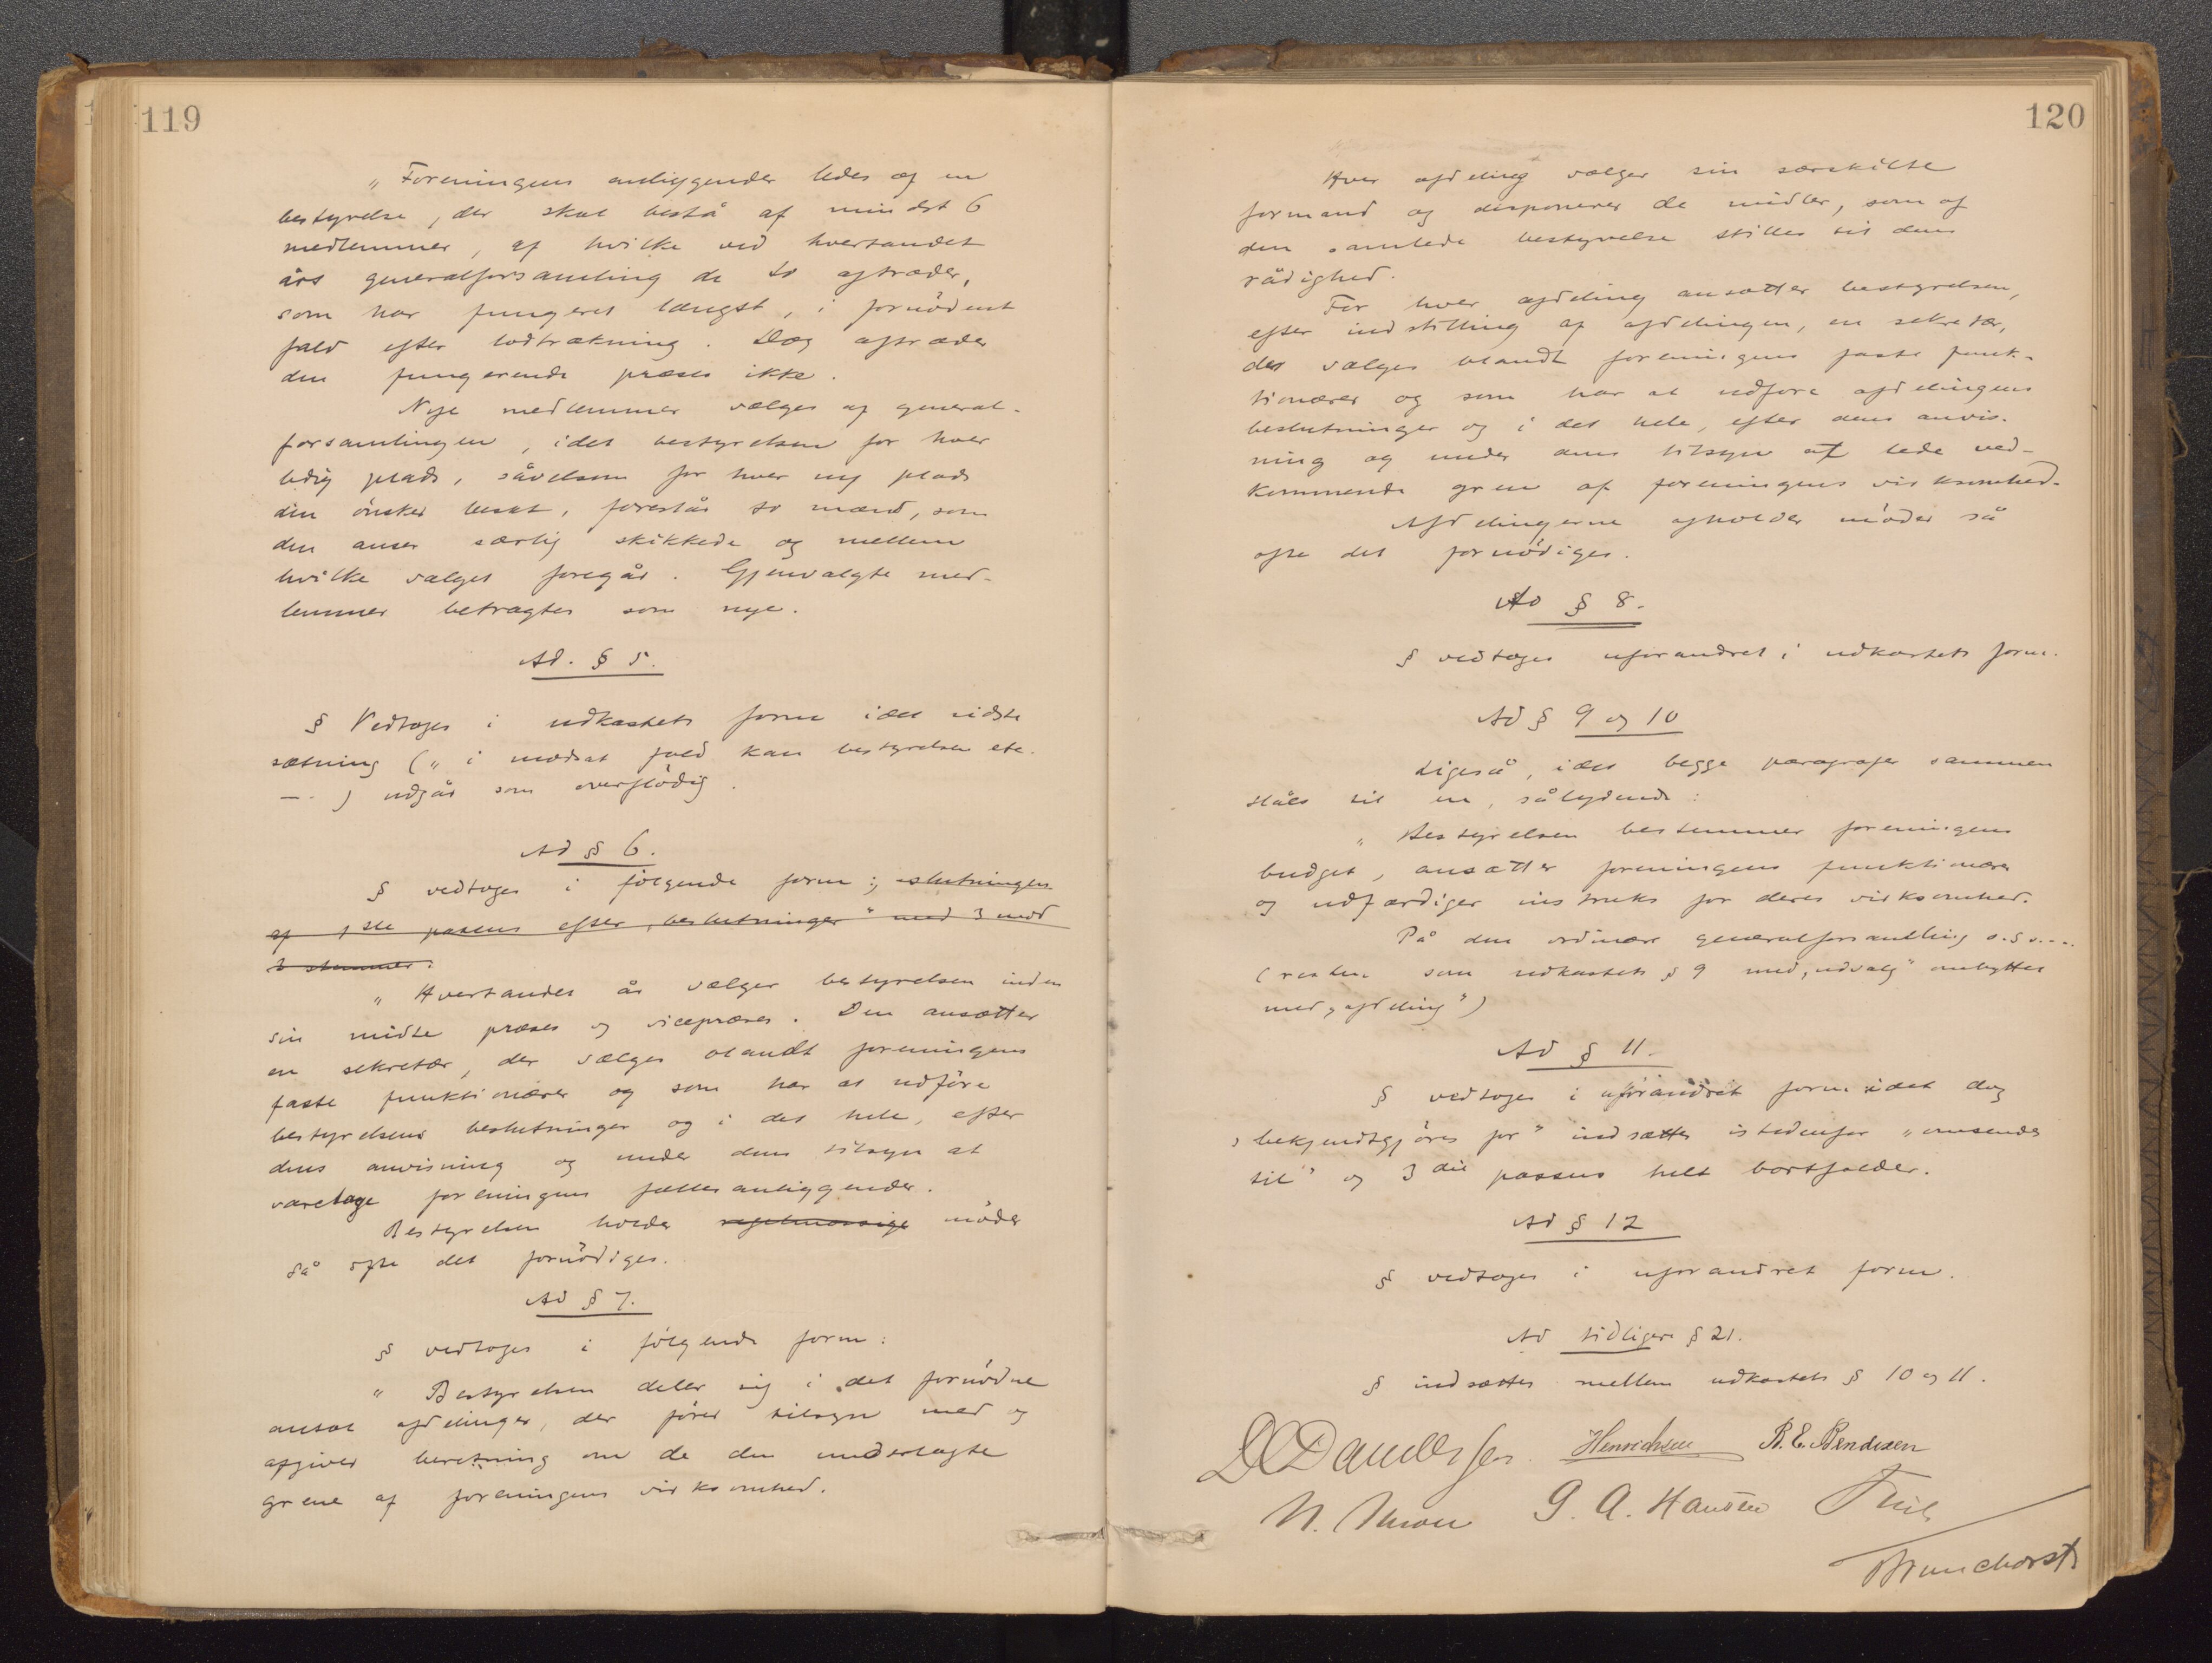 119
„Foreningens anliggender ledes af en
bestyrelse, der skal bestå af mindst 6
medlemmer, af hvilke ved hvertandet
års generalforsamling de to aftræder,
som har fungeret længst, i fornödent
fald efter lodtrækning. Dog aftræder
den fungerende præses ikke.
Nye medlemmer vælges af general-
forsamlingen, idet bestyrelsen for hver
ledig plads, såvelsom for hver ny plads
den önsker besat, foreslår to mænd, som
den anser særlig skikkede og mellem
hvilke valget foregår. Gjenvalgte med-
lemmer betragtes som nye.
Ad. § 5.
§ Vedtoges i udkastets form idet sidste
sætning („i modsat fald kan bestyrelsen etc.
—.) udgår som overflödig.
Ad § 6.
§ vedtoges i fölgende form: slutningen
af 1ste passus efter „beslutninger“ med 3 mod
2 stemmer.
„Hvertandet år vælger bestyrelsen inden
sin midte præses og vicepræses. Den ansætter
en sekretær, der vælges blandt foreningens
faste funktionærer og som har at udföre
bestyrelsens beslutninger og i det hele, efter
dens anvisning og under dens tilsyn at
varetage foreningens fælles anliggender.
Bestyrelsen holder regelmæssige möder
så ofte det fornödiges.
Ad § 7.
§ vedtoges i fölgende form:
„Bestyrelsen deler sig i det fornödne
antal afdelinger, der förer tilsyn med og
afgiver beretning om de den underlagte
grene af foreningens virksomhed.
120
Hver afdeling vælger sin særskilte
formand og disponerer de midler, som af
den samlede bestyrelse stilles til dens
rådighed.
For hver afdeling ansætter bestyrelsen,
efter indstilling af afdelingen, en sekretær,
der vælges blandt foreningens faste funk-
tionærer og som har at udföre afdelingens
beslutninger og i det hele, efter dens anvis-
ning og under dens tilsyn at lede ved-
kommende gren af foreningens virksomhed.
Afdelingerne afholder möder så
ofte det fornödiges.
Ad § 8.
§ vedtoges uforandret i udkastets form.
Ad § 9 og 10
Ligeså, idet begge paragrafer sammen
slåes til en, sålydende:
„Bestyrelsen bestemmer foreningens
budget, ansætter foreningens funktionærer
og udfærdiger instruks for deres virksomhed.
På den ordinære generalforsamling o.s.v....
(resten som udkastets § 9 med „udvalg“ ombyttet
med „afdeling“)
Ad § 11.
§ vedtoges i uforandret form idet dog
„bekjendtgjöres for“ indsættes istedenfor „omsendes
til“ og 3die passus helt bortfalder.
Ad § 12
§ vedtoges i uforandret form.
Ad tidligere § 21.
§ indsættes mellem udkastets § 10 og 11.
DC Danielssen. Henrichsen B. E. Bendixen
G. A. Hansen
Brunchorst